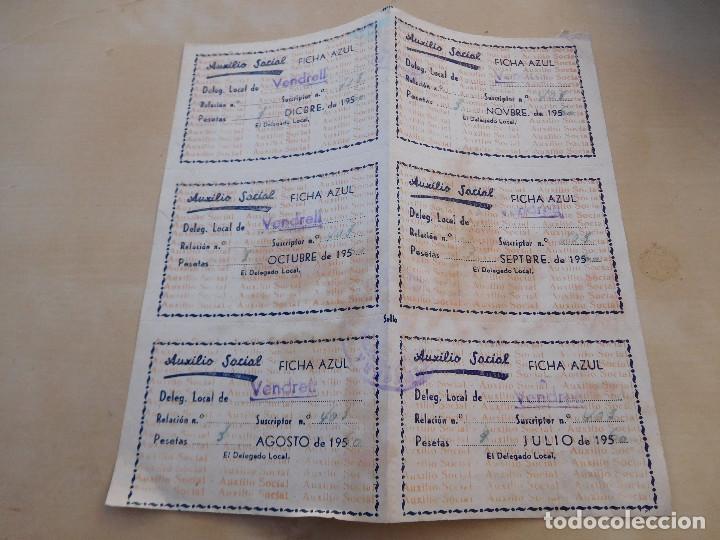 Auxilio Social FICHA AZUL
Deleg. Local de Vendrell
Relación n.º Suscriptor n.º
Pesetas DICBRE. de 195
El Delegado Local,
Auxilio Social FICHA AZUL
Deleg. Local de
Relación n.º Suscriptor n.º
Pesetas NOVBRE. de 195
El Delegado Local,
Auxilio Social FICHA AZUL
Deleg. Local de Vendrell
Relación n.º Suscriptor n.º
Pesetas OCTUBRE de 195
El Delegado Local,
Auxilio Social FICHA AZUL
Deleg. Local de Vendrell
Relación n.º Suscriptor n.º
Pesetas SEPTBRE. de 195
El Delegado Local,
Sello
Auxilio Social FICHA AZUL
Deleg. Local de Vendrell
Relación n.º Suscriptor n.º 403
Pesetas AGOSTO de 1950
El Delegado Local,
Auxilio Social FICHA AZUL
Deleg. Local de Vendrell
Relación n.º Suscriptor n.º 403
Pesetas JULIO de 1950
El Delegado Local,
todocoleccion.net